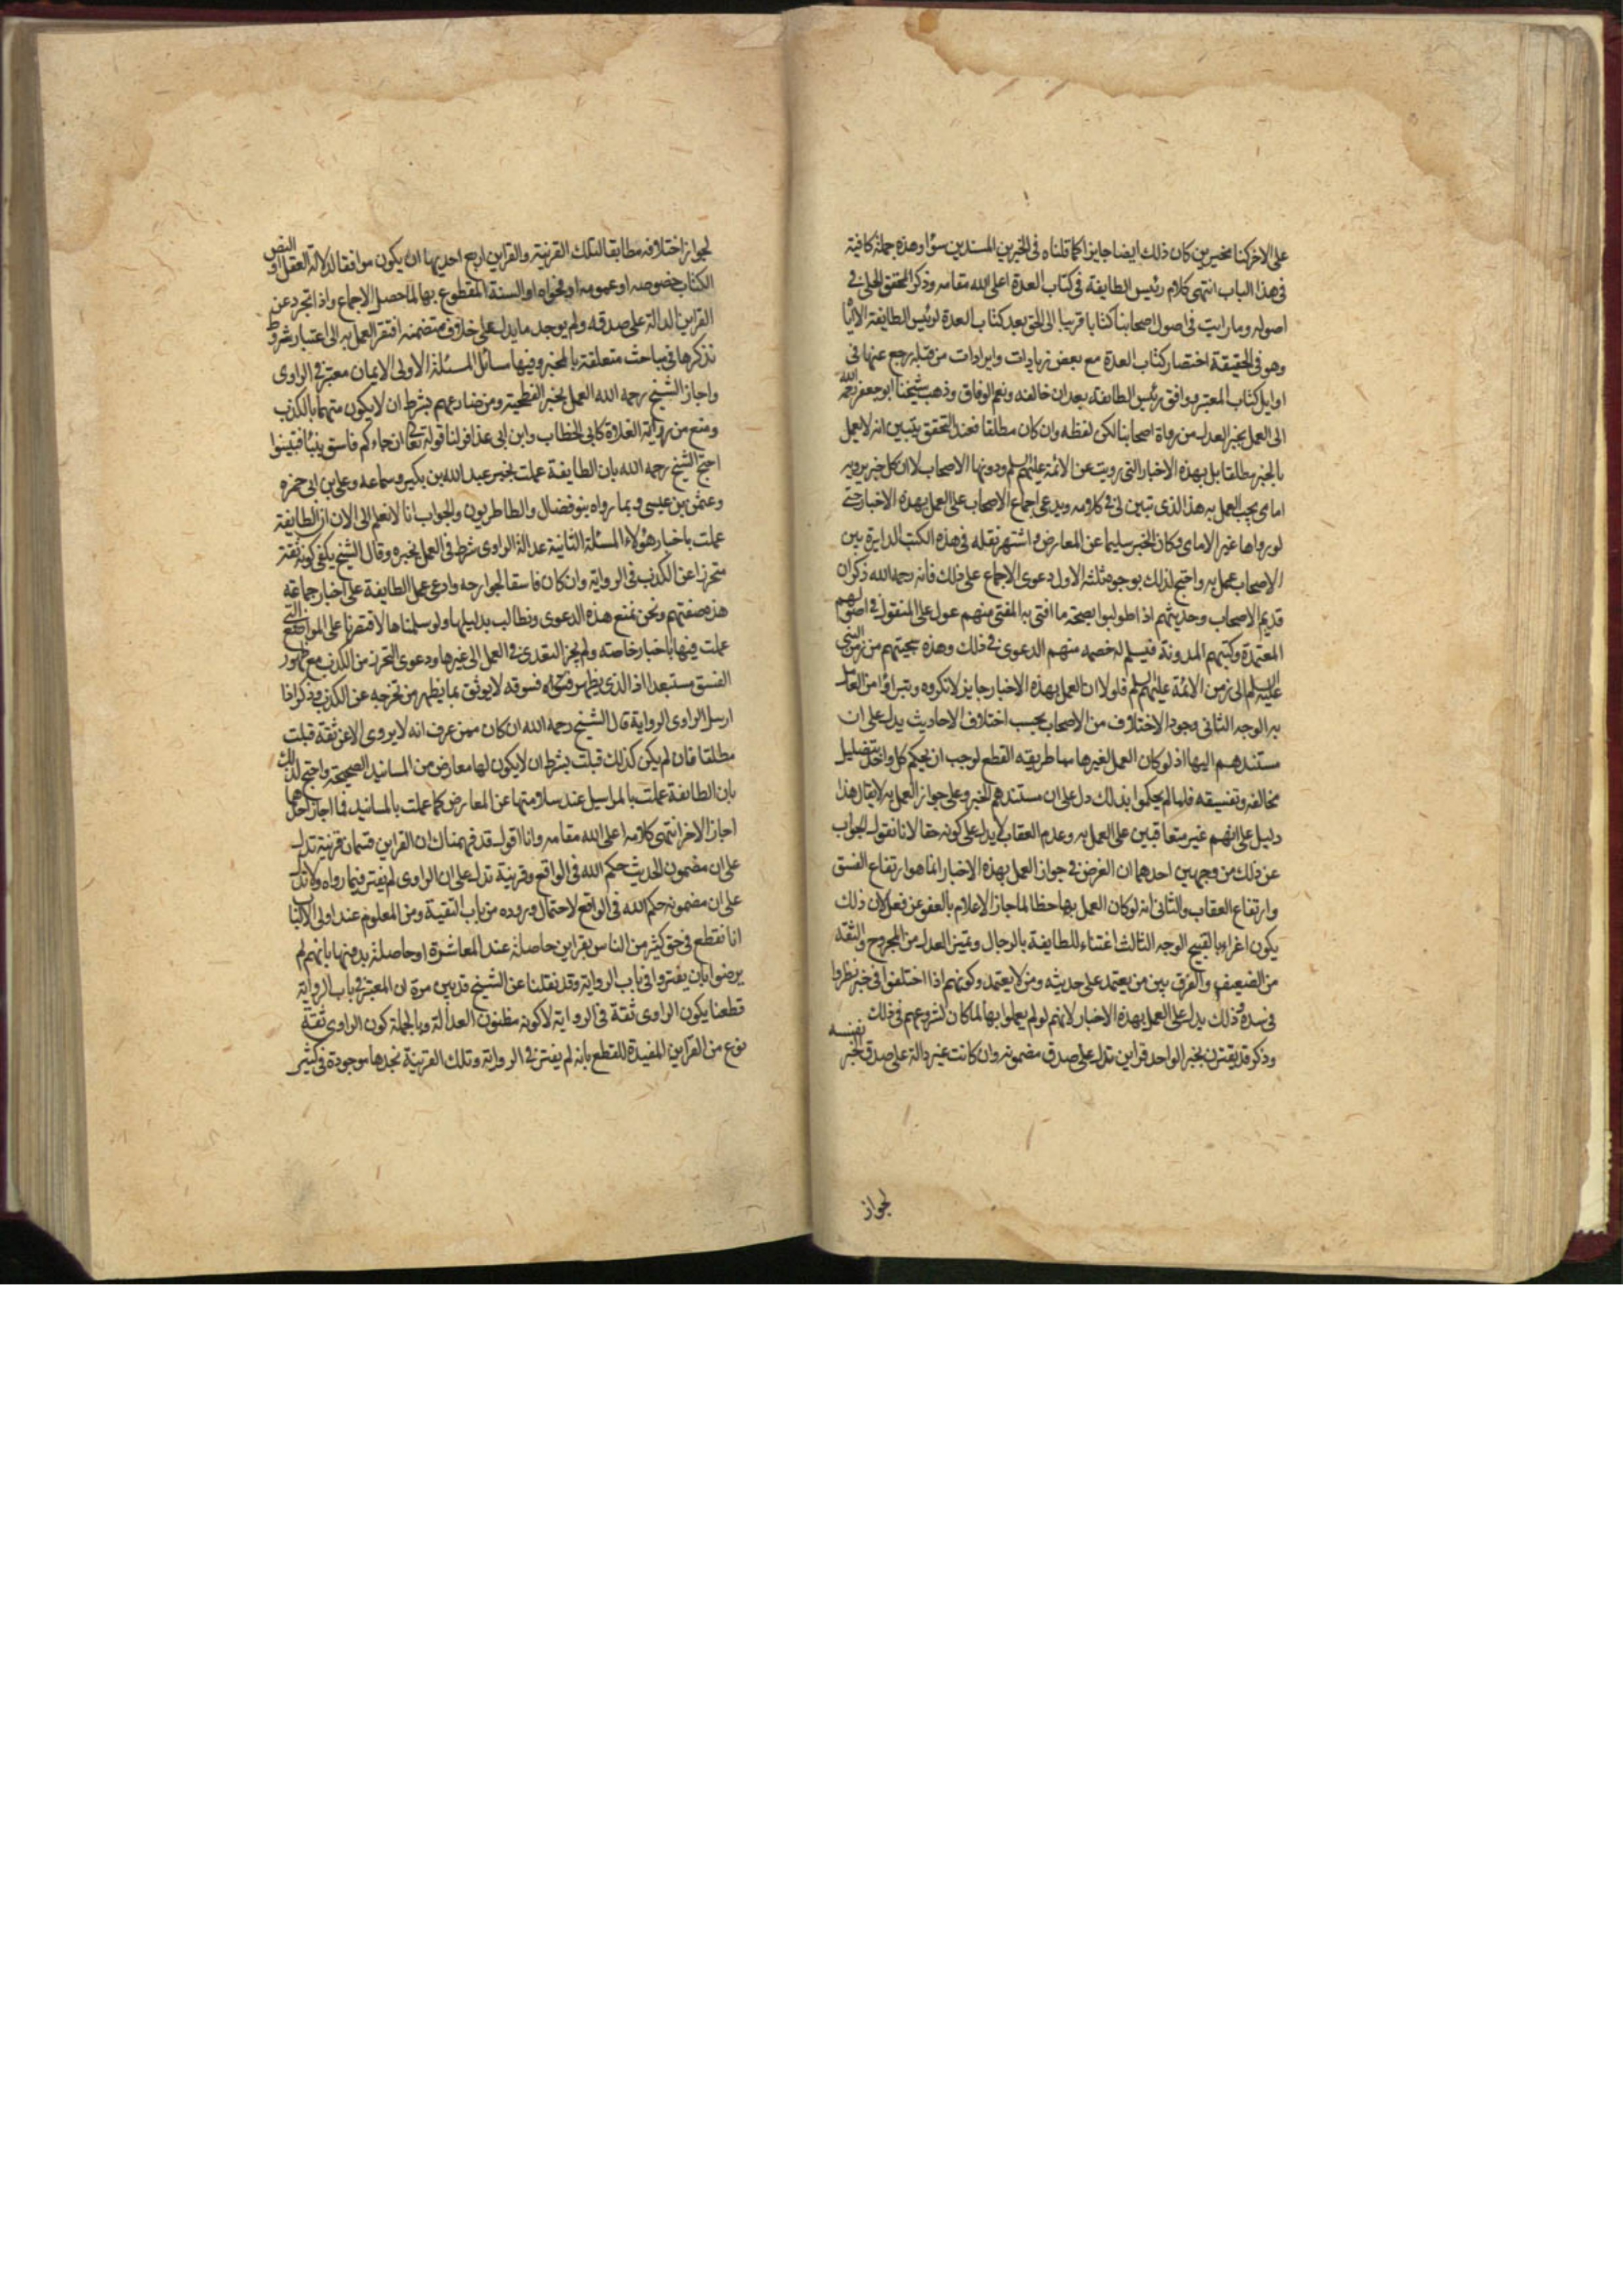 على الاخر كنا مخيرين كان ذلك ايضا جايزا كما قلناه فى الخبرين المسندين سوا وهذه جملة كافية
فى هذا الباب انتهى كلام رئيس الطايفة فى كتاب العدة اعلى الله مقامه وذكر المحقق الحلى فى
اصوله وما رايت فى اصول اصحابنا كتابا قريبا الى الحق بعد كتاب العدة لرئيس الطايفة الا اياه
وهو فى الحقيقة اختصار كتاب العدة مع بعض زيادات وايرادات من قبله رجع عنها فى
اوايل كتاب المعتبر ووافق رئيس الطايفة بعد ان خالفه ونعم الوفاق وذهب شيخنا ابو جعفر رحمه الله
الى العمل بخبر العدل من رواة اصحابنا لكن لفظه وان كان مطلقا فعند التحقق يتبين انه لا يعمل
بالخبر مطلقا بل بهذه الاخبار التى رويت عن الائمة عليهم السلم ودونها الاصحاب لا ان كل خبر يرويه
امامى يجب العمل به هذا الذى تبين لى فى كلامه ويدعى اجماع الاصحاب على العمل بهذه الاخبار حتى
لو رواها غير الامامى وكان الخبر سليما عن المعارض واشتهر نقله فى هذه الكتب الدايرة بين
الاصحاب عمل به واحتج لذلك بوجوه ثلثة الاول دعوى الاجماع على ذلك فانه رحمه الله ذكر ان
قديم الاصحاب وحديثهم اذا طولبوا بصحة ما افتى به المفتى منهم عول على المنقول فى اصولهم
المعتمدة وكتبهم المدونة فيسلم له خصمه منهم الدعوى فى ذلك وهذه سجيتهم من زمن النبى
عليه السلم الى زمن الائمة عليهم السلم فلولا ان العمل بهذه الاخبار جايز لانكروه وتبراؤا من العامل
به الوجه الثانى وجود الاختلاف من الاصحاب بحسب اختلاف الاحاديث يدل على ان
مستندهم اليها اذ لو كان العمل لغيرها مما طريقه القطع لوجب ان يحكم كل واحد بتضليل
مخالفه وتفسيقه فلما لم يحكموا بذلك دل على ان مستندهم الخبر وعلى جواز العمل به لا يقال هذا
دليل على انهم غير متعاقبين على العمل به وعدم العقاب لا يدل على كونه حقا لانا نقول الجواب
عن ذلك من وجهين احدهما ان الغرض فى جواز العمل بهذه الاخبار انما هو ارتفاع الفسق
وارتفاع العقاب والثانى انه لو كان العمل بها خطا لما جاز الاعلام بالعفو عن فعل لان ذلك
يكون اغراء بالقبيح الوجه الثالث اعتناء الطايفة بالرجال وتميز العدل من المجروح والثقة
من الضعيف والفرق بين من يعتمد على حديثه ومن لا يعتمد وكونهم اذا اختلفوا فى خبر نظروا
فى سنده وذلك يدل على العمل بهذه الاخبار لانهم لو لم يعملوا بها لما كان لشروعهم فى ذلك
وذكر قد يقترن بخبر الواحد قراين تدل على صدق مضمونه وان كانت غير دالة على صدق الخبر نفسه
لجواز
لجواز اختلاقه مطابقا لتلك القرينة والقراين اربع احديها ان يكون موافقا لدلالة العقل او النص
الكتاب خصوصه او عمومه او فحواه او السنة المقطوع بها لما حصل الاجماع واذا تجرد عن
القراين الدالة على صدقه ولم يوجد ما يدل على خلاف متضمنه افتقر العمل به الى اعتبار شروط
نذكرها فى مباحث متعلقة بالمخبر وفيها مسائل المسئلة الاولى الايمان معتبر فى الراوى
واجاز الشيخ رحمه الله العمل بخبر الفطحية ومن ضارعهم بشرط ان لا يكون متهما بالكذب
ومنع من رواية الغلاة كابى الخطاب وابن ابى عذاقر لنا قوله تعالى ان جاءكم فاسق بنبا فتبينوا
احتج الشيخ رحمه الله بان الطايفة عملت بخبر عبد الله بن بكير وسماعه وعلى بن ابى حمزه
وعثمن بن عيسى وبما رواه بنو فضال والطاطريون والجواب انا لا نعلم الى الان ان الطايفة
عملت باخبار هؤلاء المسئلة الثانية عدالة الراوى شرط فى العمل بخبره وقال الشيخ يكفى كونه ثقة
متحرزا عن الكذب فى الرواية وان كان فاسقا لجوارحه وادعى عمل الطايفة على اخبار جماعة
هذه صفتهم ونحن نمنع هذه الدعوى ونطالب بدليلها ولو سلمناها لاقتصرنا على المواضع التى
عملت فيها باخبار خاصة ولم يجز التعدى فى العمل الى غيرها ودعوى التحرز من الكذب مع ظهور
الفسق مستبعد اذ الذى يظهر فسوقه لا يوثق بما يظهر من تحرجه عن الكذب وذكر اذا
ارسل الراوى الرواية قال الشيخ رحمه الله ان كان ممن عرف انه لا يروى الا عن ثقة قبلت
مطلقا فان لم يكن كذلك قبلت بشرط ان لا يكون لها معارض من المسانيد الصحيحة واحتج لذلك
بان الطايفة عملت بالمراسيل عند سلامتها عن المعارض كما عملت بالمسانيد فما اجاز احدهما
اجاز الاخر انتهى كلامه اعلى الله مقامه وانا اقول قد فهمناك ان القراين قسمان قرينة تدل
على ان مضمون الحديث حكم الله فى الواقع وقرينة تدل على ان الراوى لم يفتر فيما رواه ولا تدل
على ان مضمونه حكم الله فى الواقع لاحتمال وروده من باب التقية ومن المعلوم عند اولى الالباب
انا نقطع فى حق كثير من الناس بقراين حاصلة عند المعاشرة او حاصلة بدونها بانهم لم
يرضوا بان يفتروا فى باب الرواية وقد نقلنا عن الشيخ قدس سره ان المعتبر فى باب الرواية
قطعنا بكون الراوى ثقة فى الرواية لا كونه مظنون العدالة وبالجملة كون الراوى ثقة
نوع من القراين المفيدة للقطع بانه لم يفتر فى الرواية وتلك القرينة نجدها موجودة فى كثير